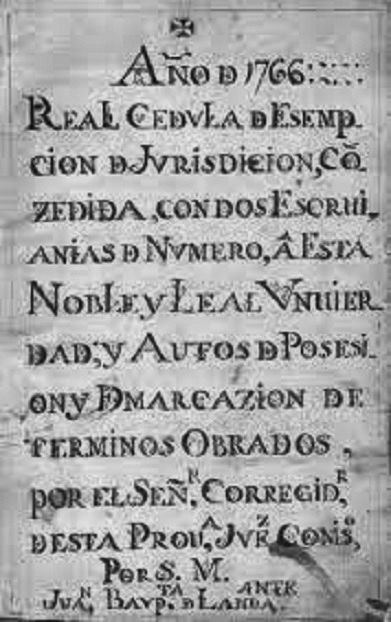 AÑO D 1766::::
REAL CEDULA DESEMP_
CION DJURISDICION, CÕ_
ZEDIDA, CON DOS ESCRIUI_
ANIAS D NVMERO, Â ESTA
NOBLE Y LEAL VNIUER_
DAD; Y AUTOS D POSESI
ON Y DMARCAZION DE
TERMINOS OBRADOS,
POR EL SEÑ.R CORREGID.R
DESTA PROU.A JVE.Z COMS.O
POR S. M.
JUA.N BAUP.TA D LANDA.